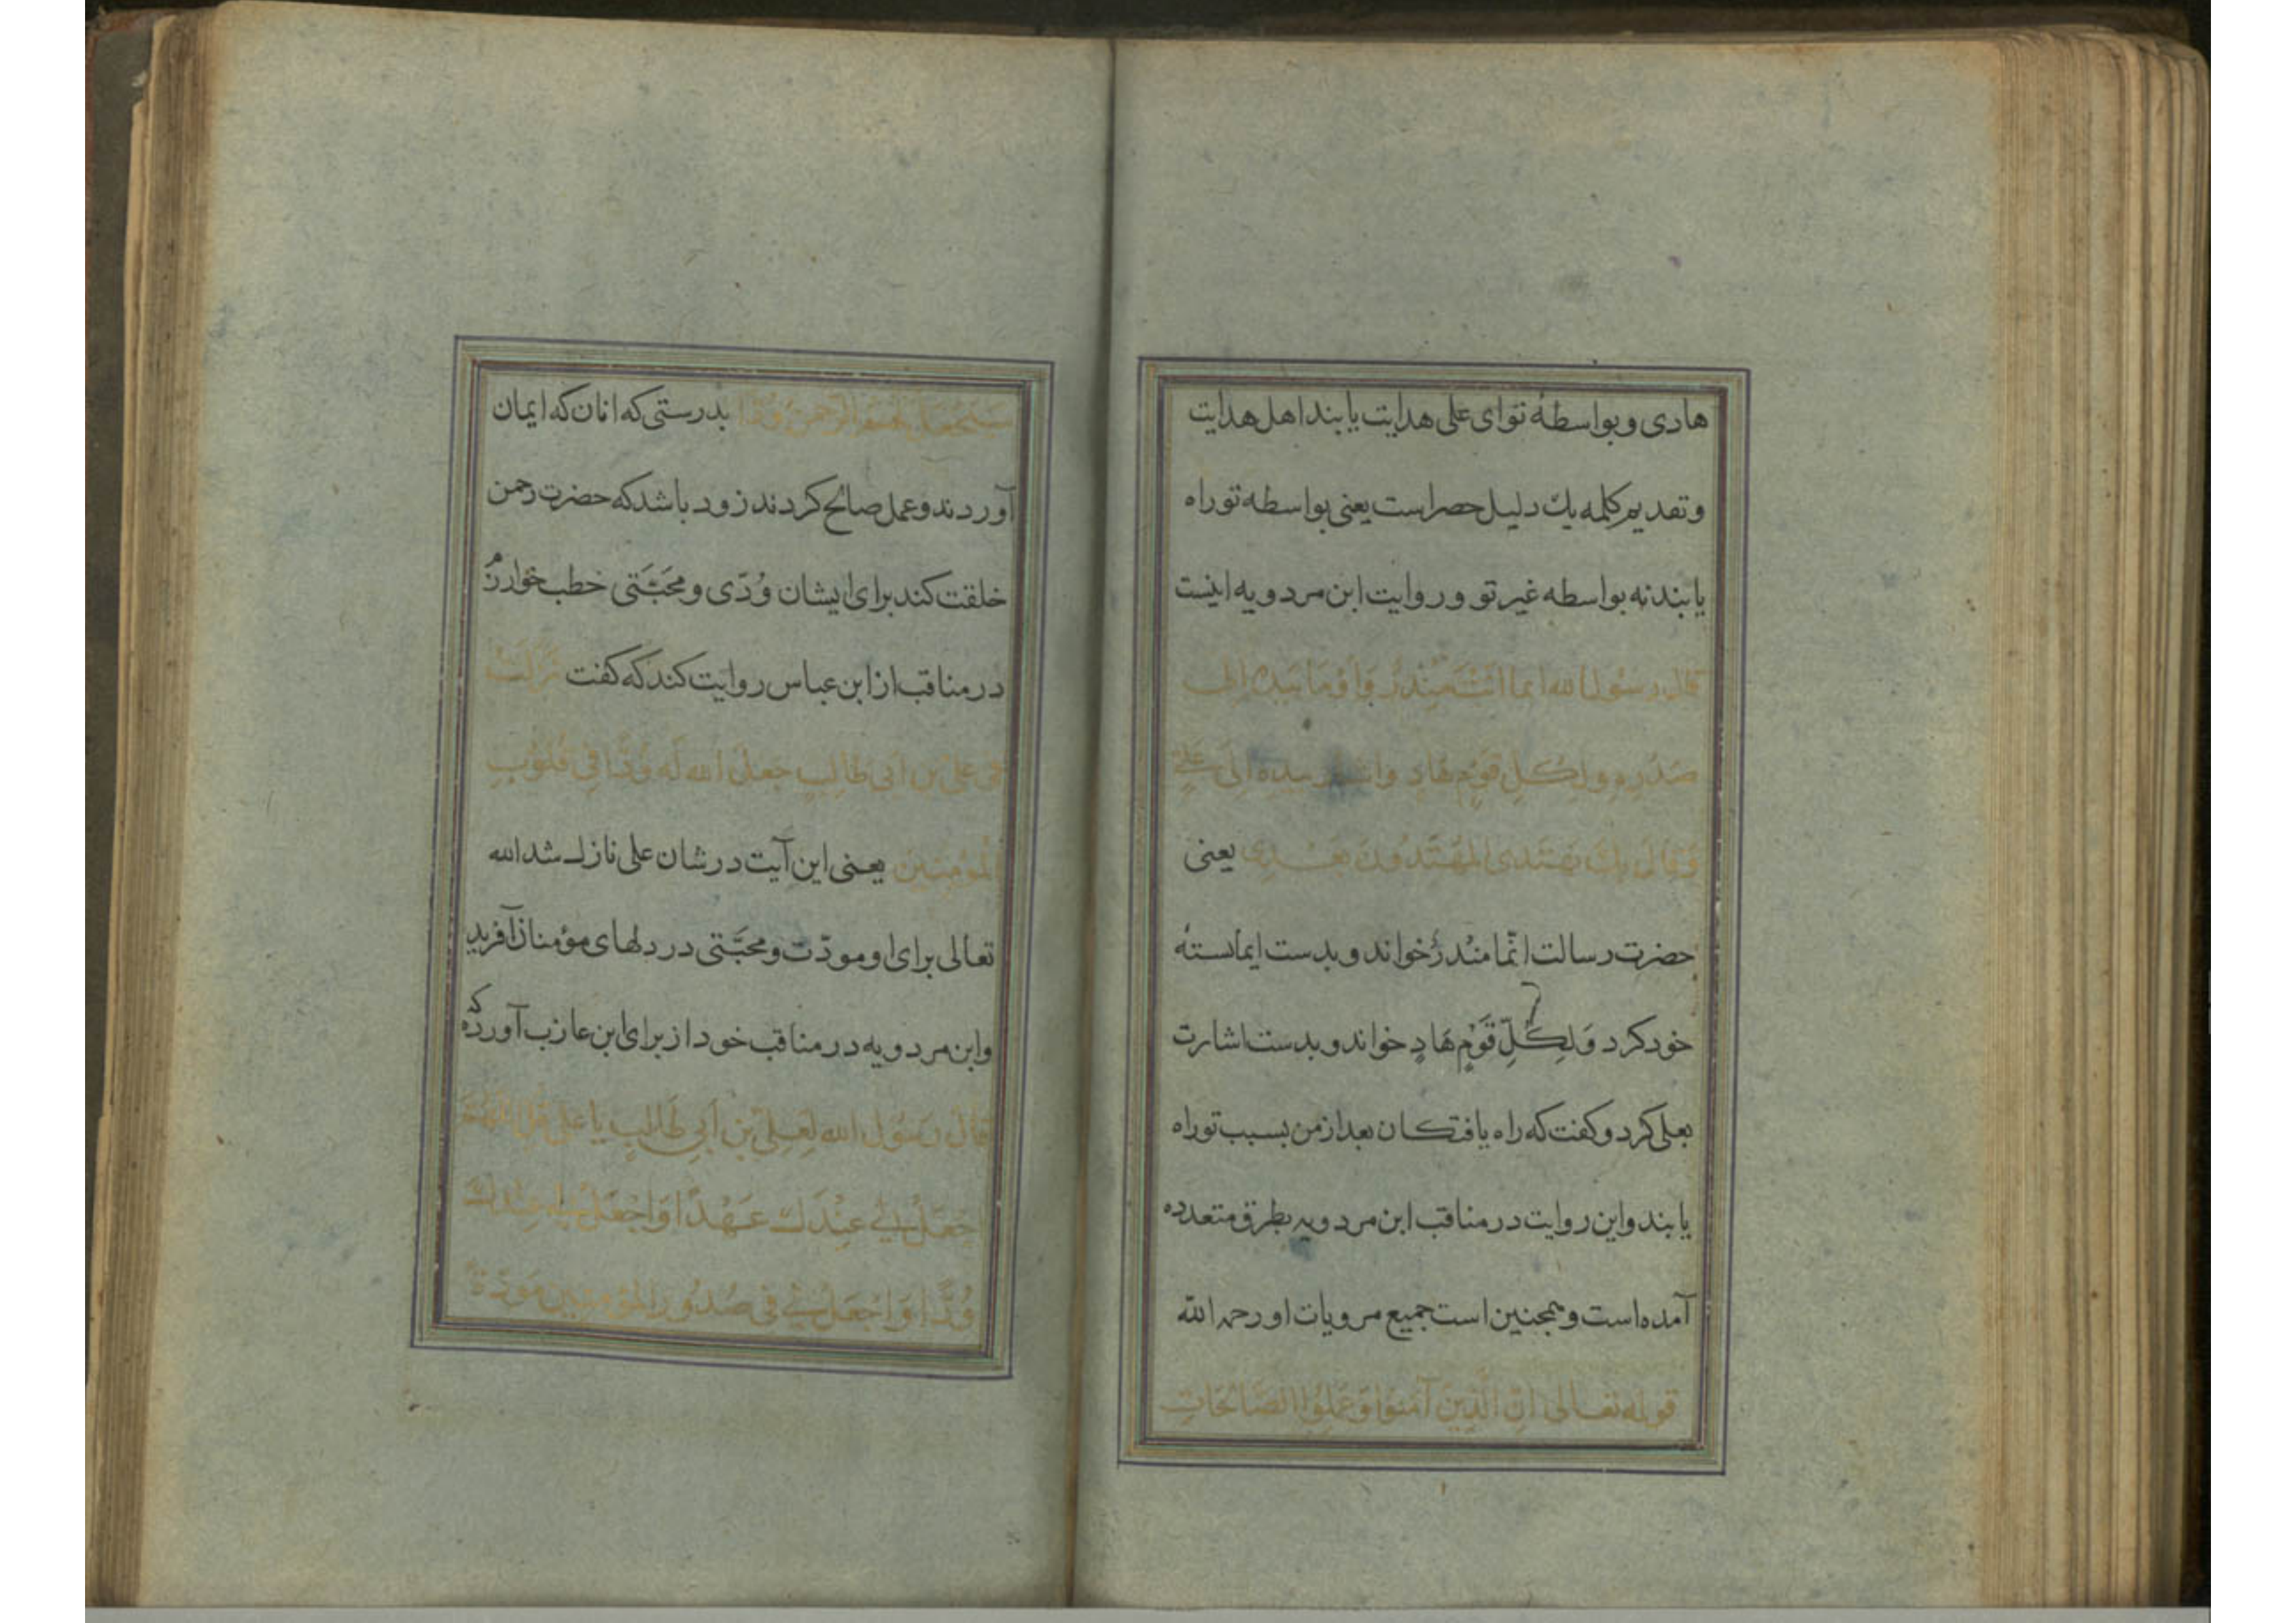 هادی و بواسطهٔ تو ای علی هدایت یابند اهل هدایت
و تقدیم کلمه بك دلیل حصر است یعنی بواسطه تو راه
یابند نه بواسطه غیر تو و روایت ابن مردویه اینست
قال رسول الله انما انت منذر وأومأ بیده الی
صدره ولكل قوم هاد واشار بیده الی علی
وقال بك یهتدی المهتدون بعدی یعنی
حضرت رسالت انّما منذرٌ خواند و بدست ایما بسینهٔ
خود کرد وَلِكُلِّ قَوْمٍ هَادٍ خواند و بدست اشارت
بعلی کرد و کفت که راه یافتکان بعد از من بسبب تو راه
یابند و این روایت در مناقب ابن مردویه بطرق متعدده
آمده است و همچنین است جمیع مرویات او رحمه الله
قوله تعالی انّ الَّذینَ آمَنوُا وَ عَمِلوُا الصَّالِحَاتِ
سیجعل لهم الرحمن وُدّا بدرستی که انان که ایمان
آوردند و عمل صالح کردند زود باشد که حضرت رحمن
خلقت کند برای ایشان وُدّی و محبَّتی خطب خوارزم
در مناقب از ابن عباس روایت کند که کفت نَزَلَتْ
فی علی بن ابی طالِبٍ جعل الله له وُدًّا فی قُلوُبِ
الْمُؤمِنینَ یعنی این آیت در شان علی نازل شد الله
تعالی برای او مودّت و محبَّتی در دلهای مؤمنان آفرید
و ابن مردویه در مناقب خود از برای ابن عازب آورده که
قال رَسوُل الله لِعَلِیّ بن اَبی طَالِبٍ یا علی قل اللّهمّ
اجْعَلْ لی عِنْدَكَ عَهْدًا وَاجْعَلْ لی عِنْدَكَ
وُدًّا وَاجْعَلْ لی فی صُدُورِ المُؤمِنینَ مَوَدَّةً